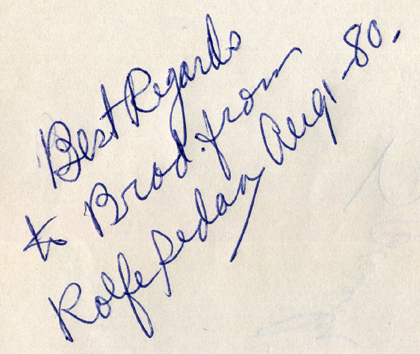 Best Regards
to Brad. from
Rolfe Sedan Aug 1-80.